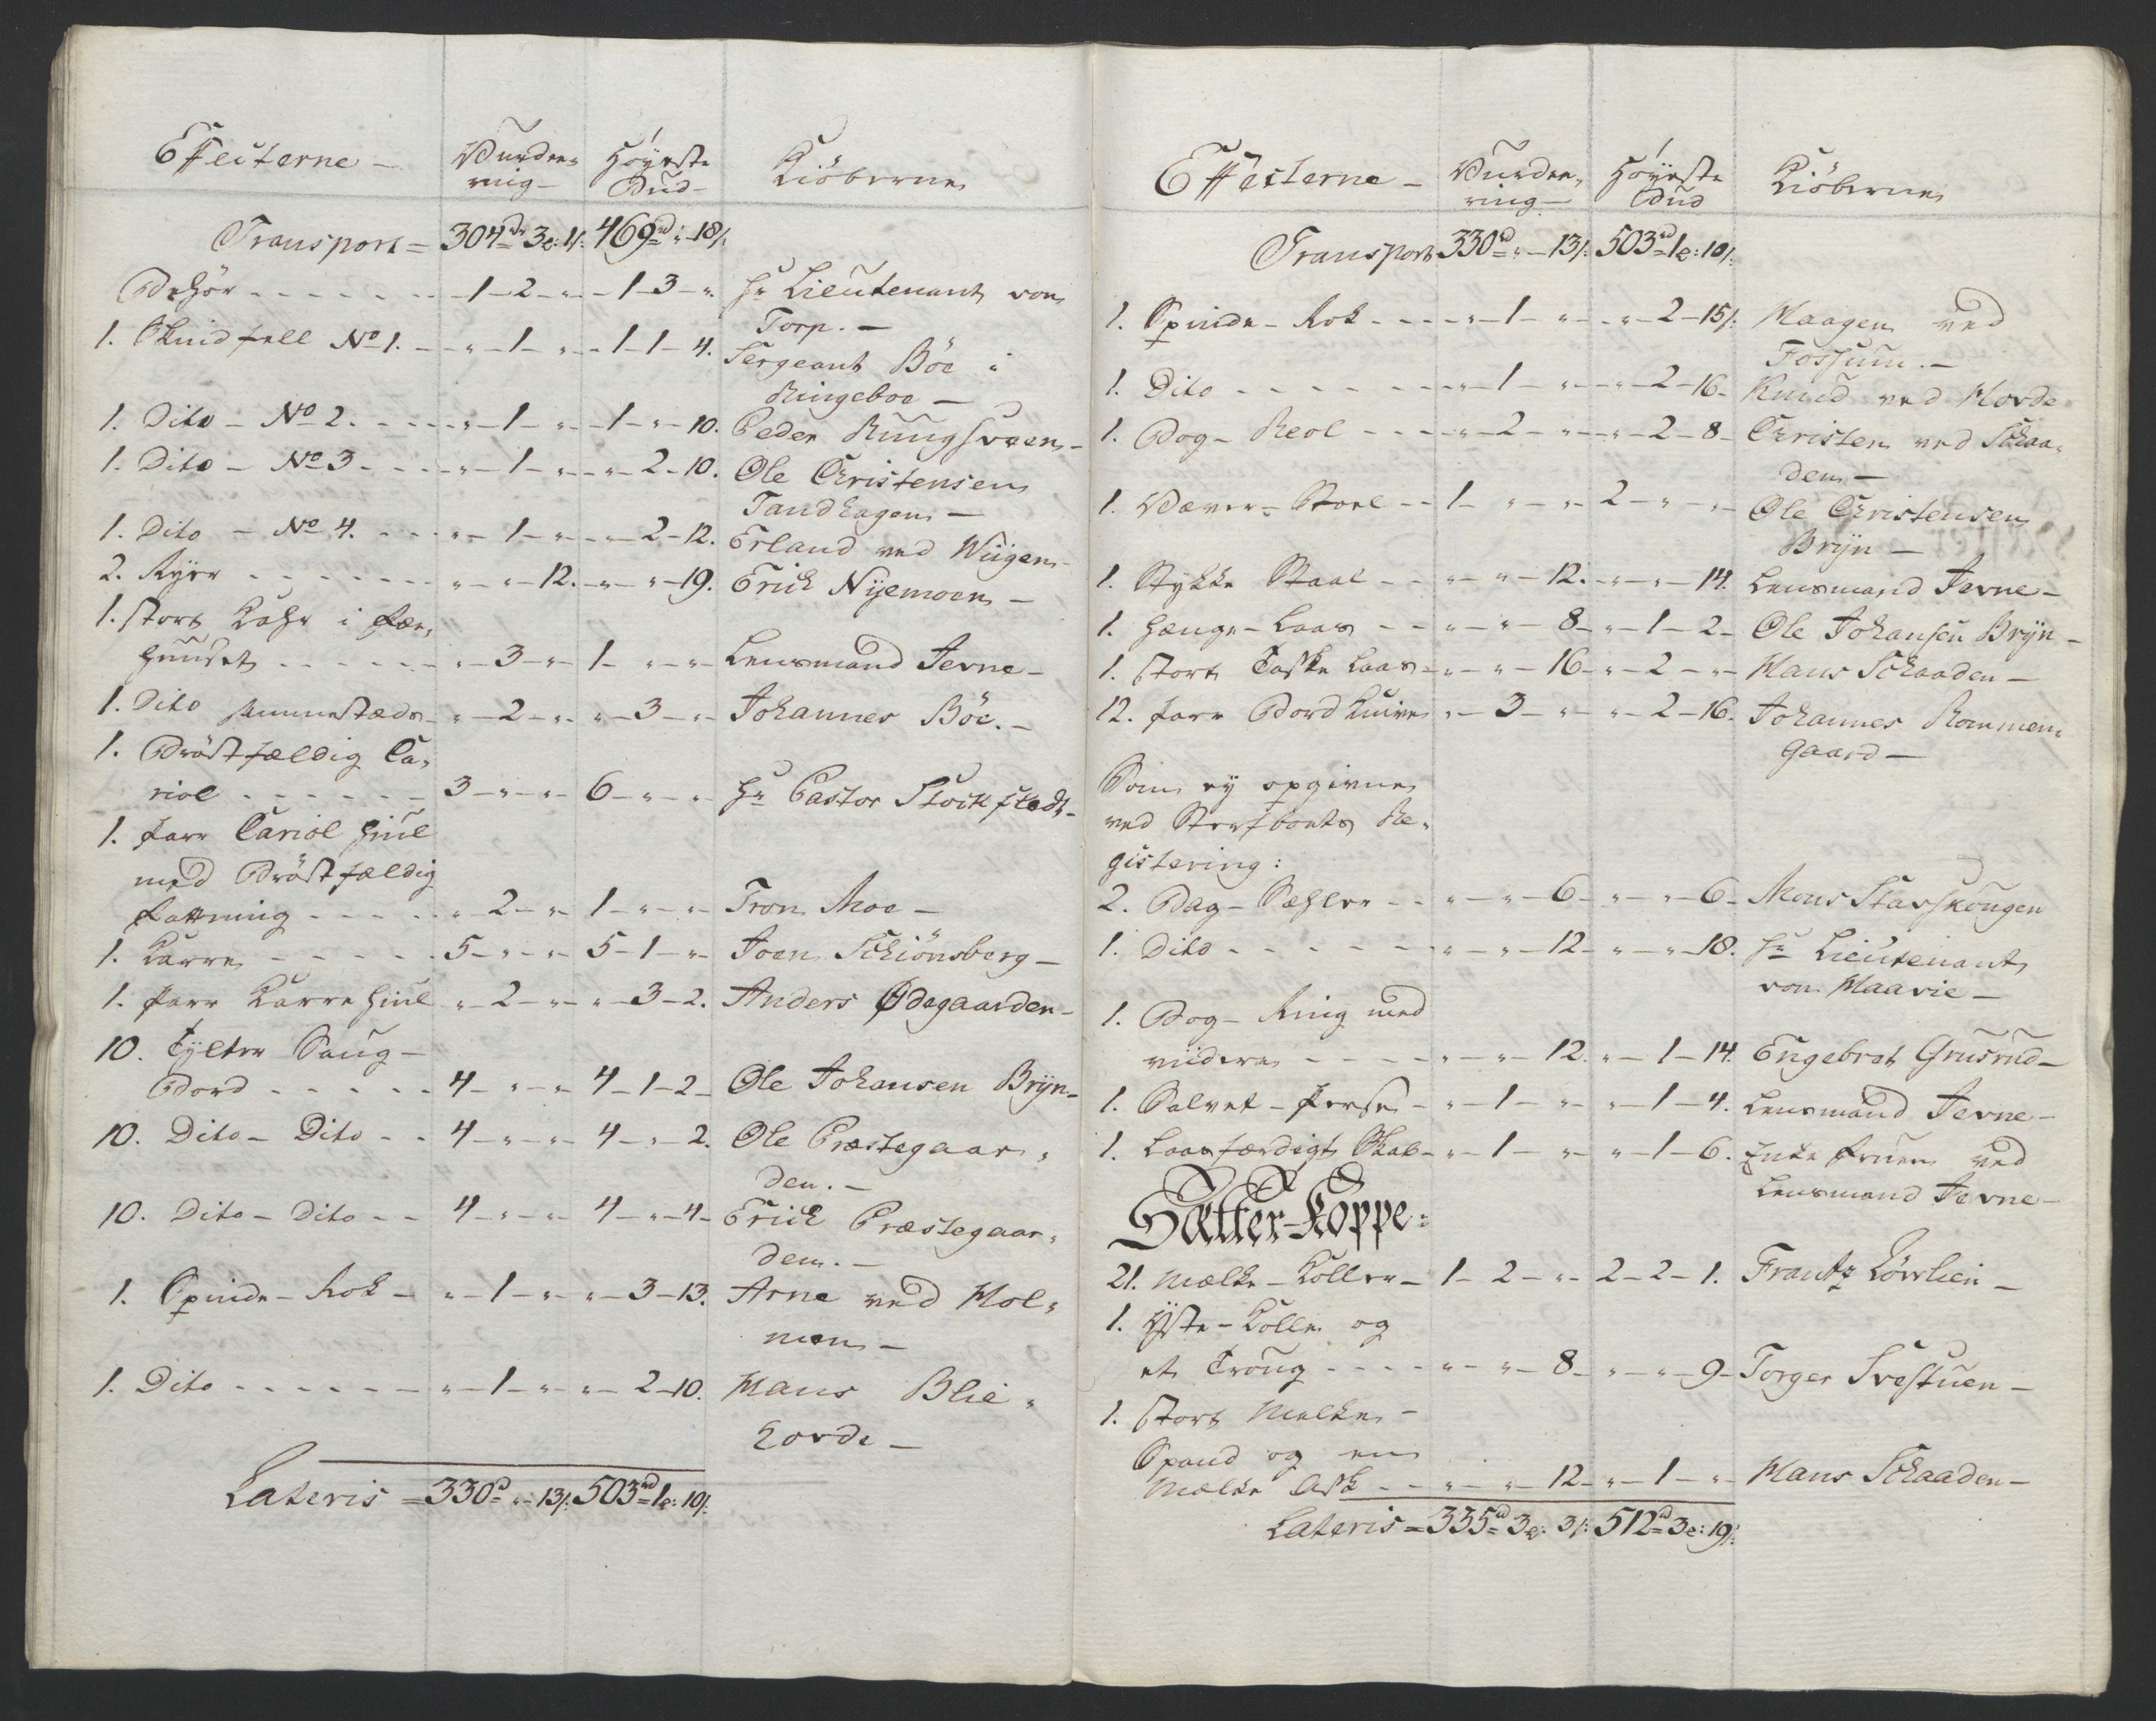 Effecterne – Vurde- Höyeste Kiöberne
ring – Bud –
Transport = 304rd 3o: 1/: 469rd " 18/:
Behör - - - - - - – 1 – 2 – " – 1 – 3 – " Hr Lieutenant von
Torp. –
1. Skindfell No 1. – " – 1 – " – 1 – 1 – 4. Sergeant Böe i
Ringeboe –
1. Dito – No 2. - - " – 1 – " – 1 – " – 10. Peder Rungsveen –
1. Dito – No 3 - - " – 1 – " – " – 2 – 10. Ole Christensen
Tandhagen –
1. Dito – No 4. - - " – 1 – " – " – 2 – 12. Erland ved Wiigen –
2. Ryer - - - - - " – " – 12. – " – " – 19. Erich Nyemoen –
1. stort Kahr i Fæe,
huuset - - - - - " – 3 – " 1 – " – " – Lensmand Jevne –
1. Dito sammestæds – " – 2 – " – " – 3 – " – Johannes Böe. –
1. Bröstfældig Ca-
riol - - - - - - 3 – " – " – 6 – " – " – Hr Pastor Stockfledt –
1. Parr Cariol Hiul
med Bröstfældig
fattning - - - - " – 2 – " – 1 – " – " – Tron Moe –
1. Karre - - - - - 5 – " – " – 5 – 1 – " – Joen Schiönsberg –
1. Parr Karrehiul " – 2 – " – " – 3 – 2. Anders Ödegaarden –
10. Tylter Saug –
Bord - - - - - 4 – " – " – 4 – 1 – 2 – Ole Johansen Bryn –
10. Dito – Dito - - 4 – " – " – 4 – " – 2. Ole Præstegaar,
den. –
10. Dito – Dito - - 4 – " – " – 4 – " – 4 – Erich Præstegaar,
den. –
1. Spinde – Rok – " – 1 – " – " – 3 – 13. Arne ved Hol,
men –
1. Dito - - - - - - " – 1 – " – " – 2 – 10. Hans Blie,
horde –
Lateris = 330rd " 13/: 503rd 1o: 10/:
Effecterne – Vurde, Höyeste Kiöberne
ring – Bud
Transport 330rd " – 13/: 503rd 1o: 10/:
1. Spinde – Rok - - - " – 1 – " – " – 2 – 15/: Haagen ved
Fossum. –
1. Dito - - - - - - " – 1 – " – " – 2 – 16 – Knud ved Horde
1. Bog – Reol - - - " – 2 – " – " – 2 – 8 – Christen ved Schaa,
den –
1. Væver – Stoel - - 1 – " – " – 2 – " – " – Ole Christensen
Bryn –
1. Stykke Staal - - " – " – 12. – " – " – 14. Lensmand Jevne –
1. Hænge – Laas - - " – " – 8 – " – 1 – 2 – Ole Johansen Bryn –
1. stort Taske Laas – " – " – 16 – " – 2 – " – Hans Schaaden –
12. Parr Bord Knive " – 3 – " – " – 2 – 16. Johannes Rommen,
gaard –
Som ey opgivne
ved Sterfboets Re,
gistering:
2. Bag – Sæhler - - " – " – 6 – " – " – 6 – Mons Starskougen
1. Dito - - - - - - " – " – 12 – " – " – 18. Hr Lieutenant
von Haavie –
1. Bog – Ring med
viidere - - - - " – " – 12. " – 1 – 14. Engebret Grusrud –
1. Salvet – Perse – " – 1 – " – " – 1 – 4. Lensmand Jevne –
1. Laasfærdigt Skab – " – 1 – " – " – 1 – 6. Enke Fruen ved
Lensmand Jevne –
Sætter-Koppe:
21. Melke – Koller – 1 – 2 – " – 2 – 2 – 1. Frantz Lövlien –
1. Yste – Kolle og
et Troug - - - - " – " – 8 – " – " – 9 – Torger Svestuen –
1. stort Melke –
Spand og en
Melke Ask - - " – " – 12 – " – 1 – " – Hans Schaaden –
Lateris = 335rd 3o: 3/: 512rd 3o: 19/: